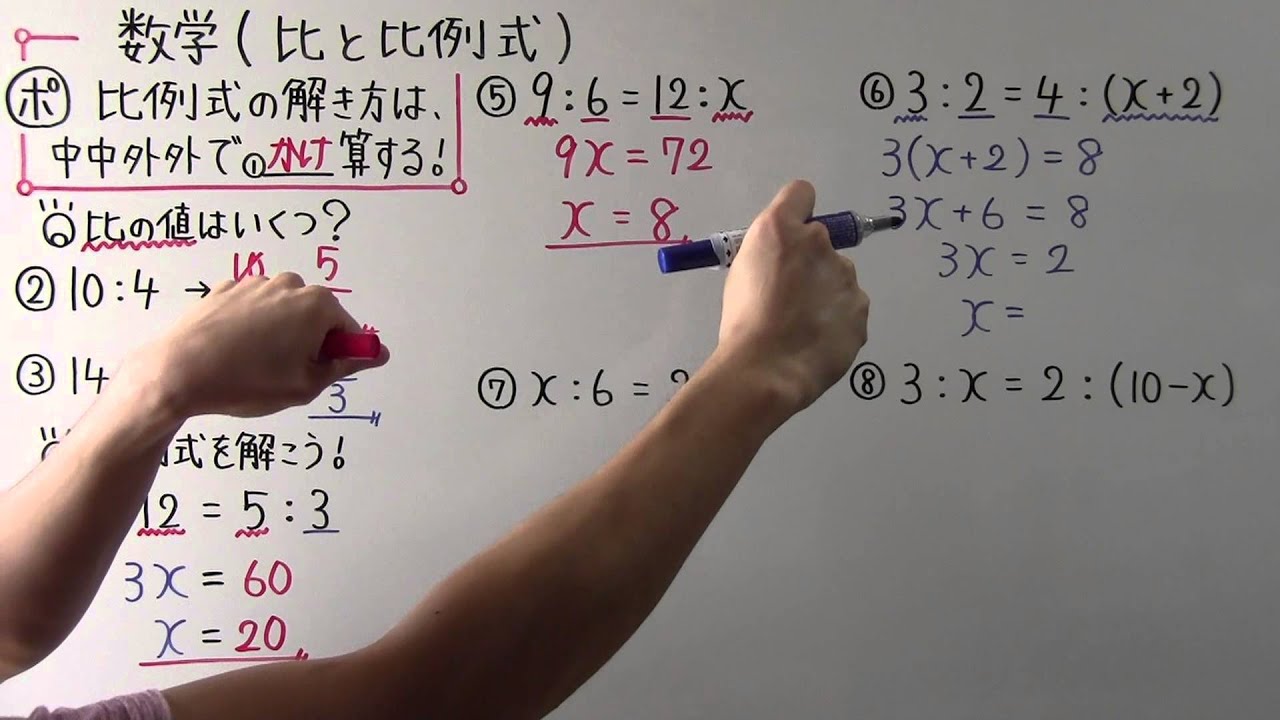 数学(比と比例式)
ポ 比例式の解き方は、
中中外外で①かけ算する!
比の値はいくつ?
②10:4 → 10 5
③14
3
式を解こう!
12 = 5:3
3x = 60
x = 20
⑤ 9:6 = 12:x
9x = 72
x = 8
⑥ 3:2 = 4:(x+2)
3(x+2) = 8
3x+6 = 8
3x = 2
x =
⑦ x:6 =
⑧ 3:x = 2:(10-x)